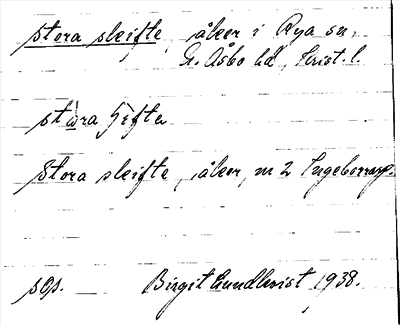 stora skifte, åker i Rya sn,
G. Åsbo hd, Krist. l.
stora
Stora skifte, åker, m 2 Ingeborrarp.
sep. Birgit Lundkvist, 1938.